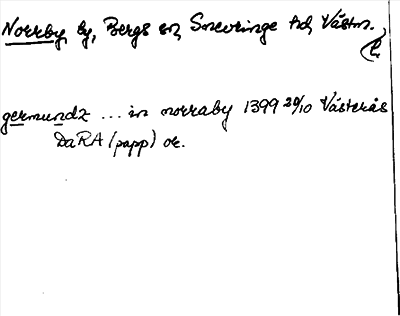 Norrby by, Bergs sn, Snevringe hd, Västm.
germundz ... in norraby 1399 20/10 Västerås
DaRA (papp) or.